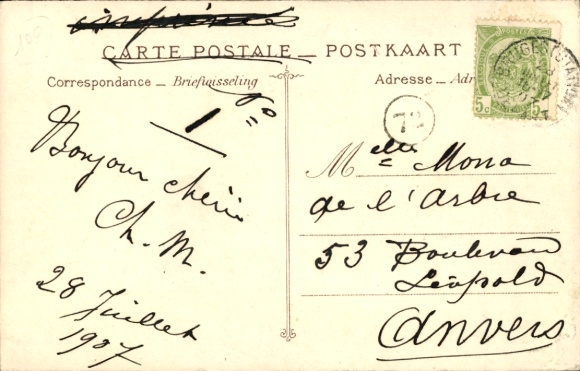 imprimés
CARTE POSTALE — POSTKAART
Correspondance — Briefwisseling
Adresse — Adr
5c
72
1
Bonjour chérie
Ch. M.
28 Juillet
1907
Melle Mona
de l'Arbre
53 Boulevard
Léopold
Anvers